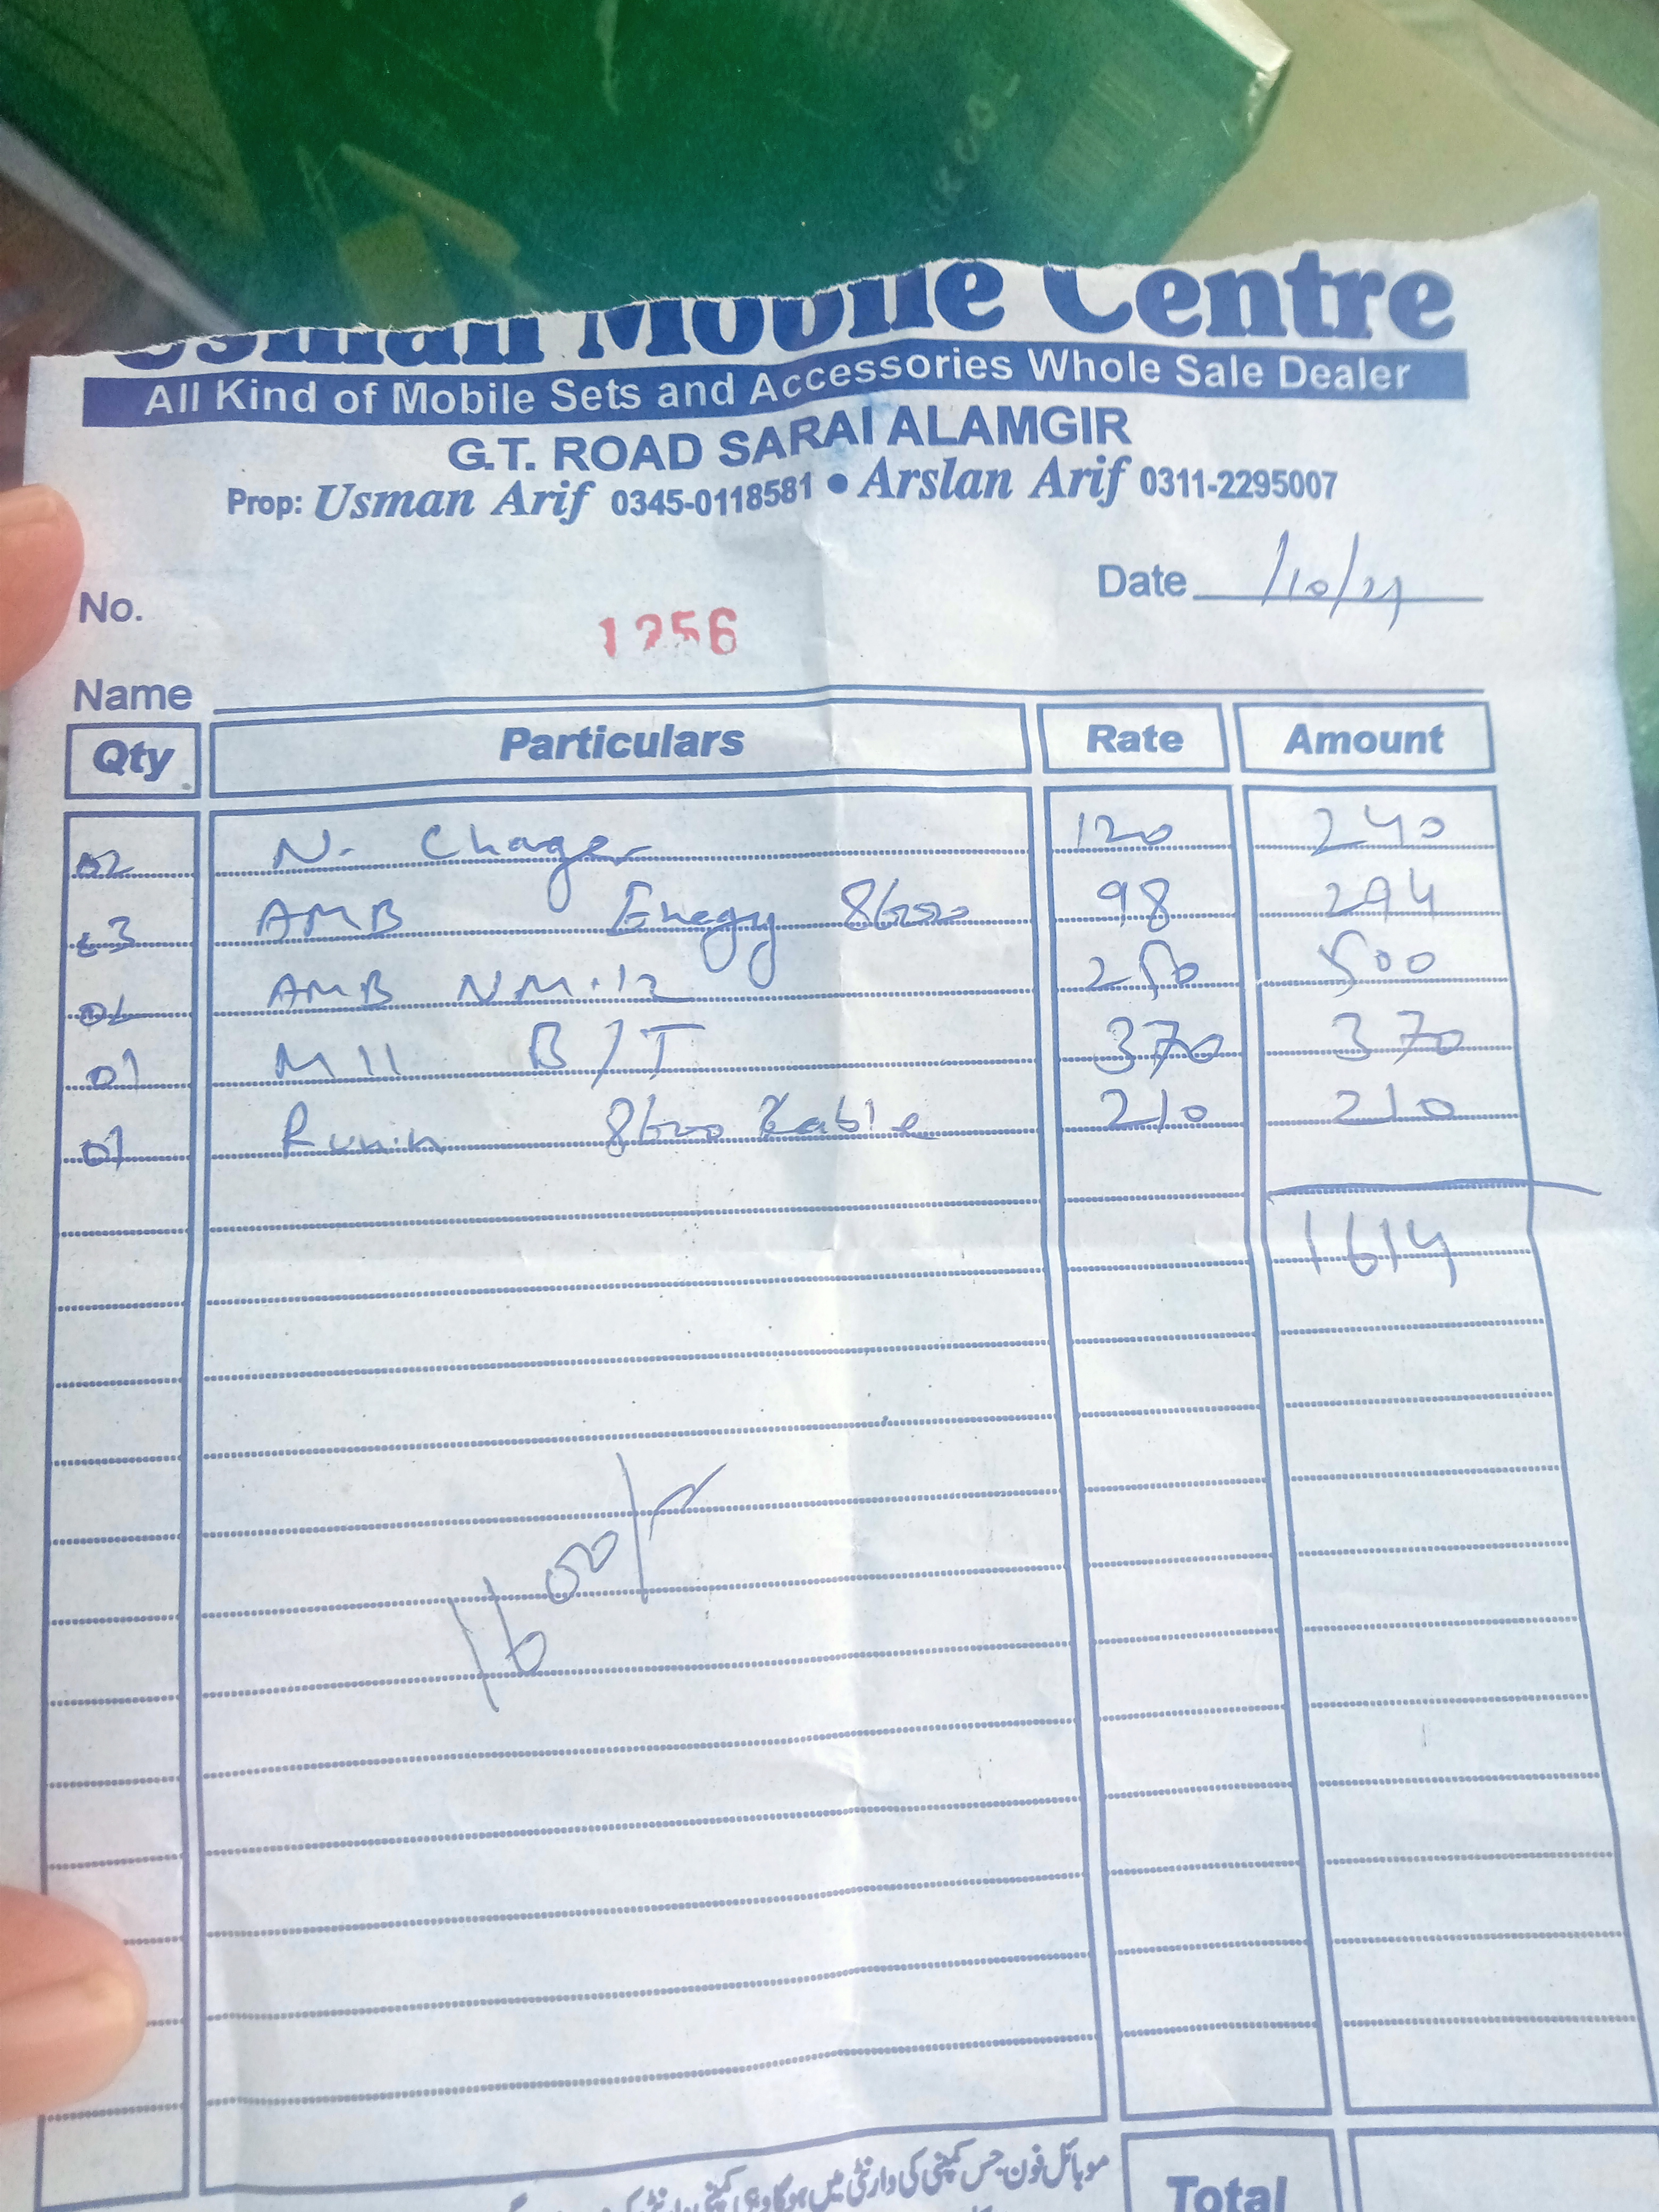 Usman Mobile Centre
All Kind of Mobile Sets and Accessories Whole Sale Dealer
G.T. ROAD SARAI ALAMGIR
Prop: Usman Arif 0345-0118581 • Arslan Arif 0311-2295007
Date /10/21
No. 1256
Name
Qty Particulars Rate Amount
02 N. Chager 120 240
03 AMB Enegy 8600 98 294
02 AMB NM-12 250 500
01 M11 B/T 370 370
01 Runin 8600 Kable 210 210
1614
1600/-
موبائل فون جس کمپنی کی وارنٹی میں ہوگا وہی کمپنی
Total